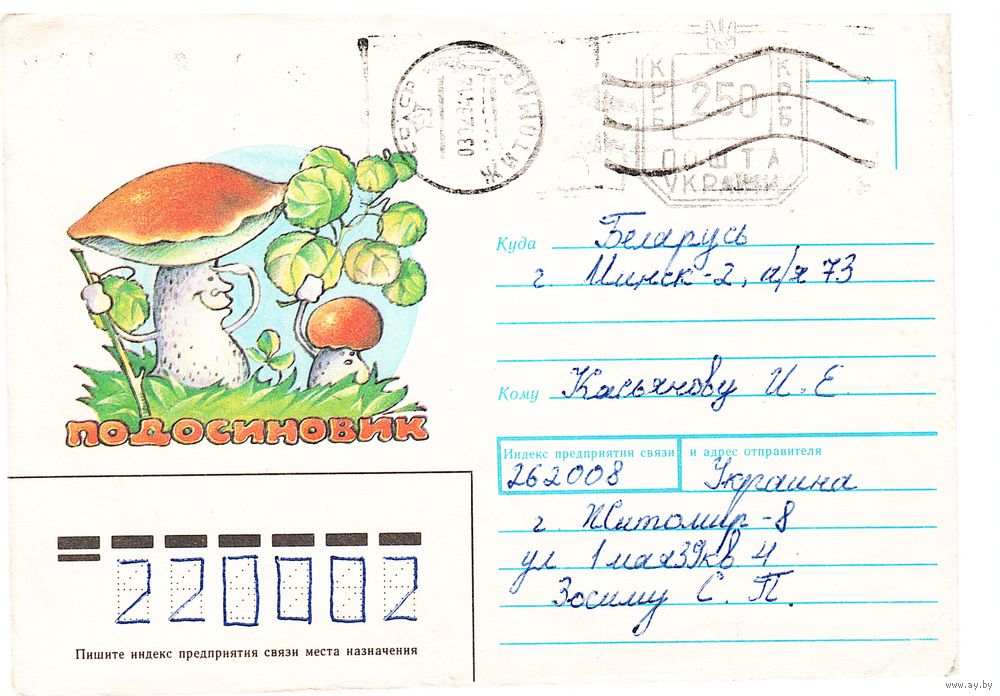 КРБ 250 КРБ
ПОШТА
УКРАЇНИ
ЖИТО
Куда Беларусь
г. Минск-2, а/я 73
Кому Касьянову И. Е.
ПОДОСИНОВИК
Индекс предприятия связи и адрес отправителя
262008 Украина
г. Житомир-8
ул 1 мая 39 кв 4
Зосиму С. П.
220002
Пишите индекс предприятия связи места назначения
www.ay.by